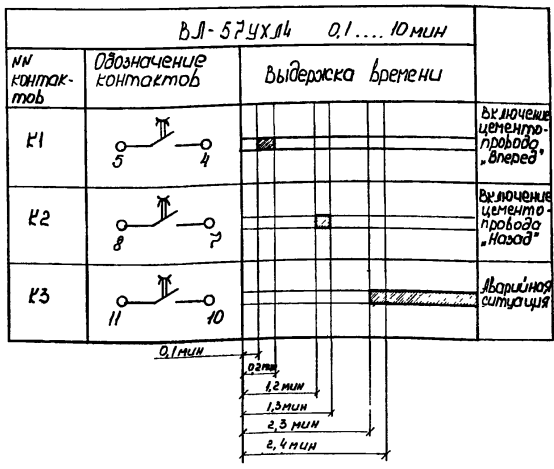 ВЛ-57УХЛ4 0,1....10 мин
NN контак-
тов
Обозначение
контактов
Выдержка времени
К1
5 4
Включение
цементо-
провода
„Вперед"
К2
8 7
Включение
цементо-
провода
„Назад"
К3
11 10
Аварийная
ситуация
0,1мин
0,2мин
1,2мин
1,3мин
2,3мин
2,4мин